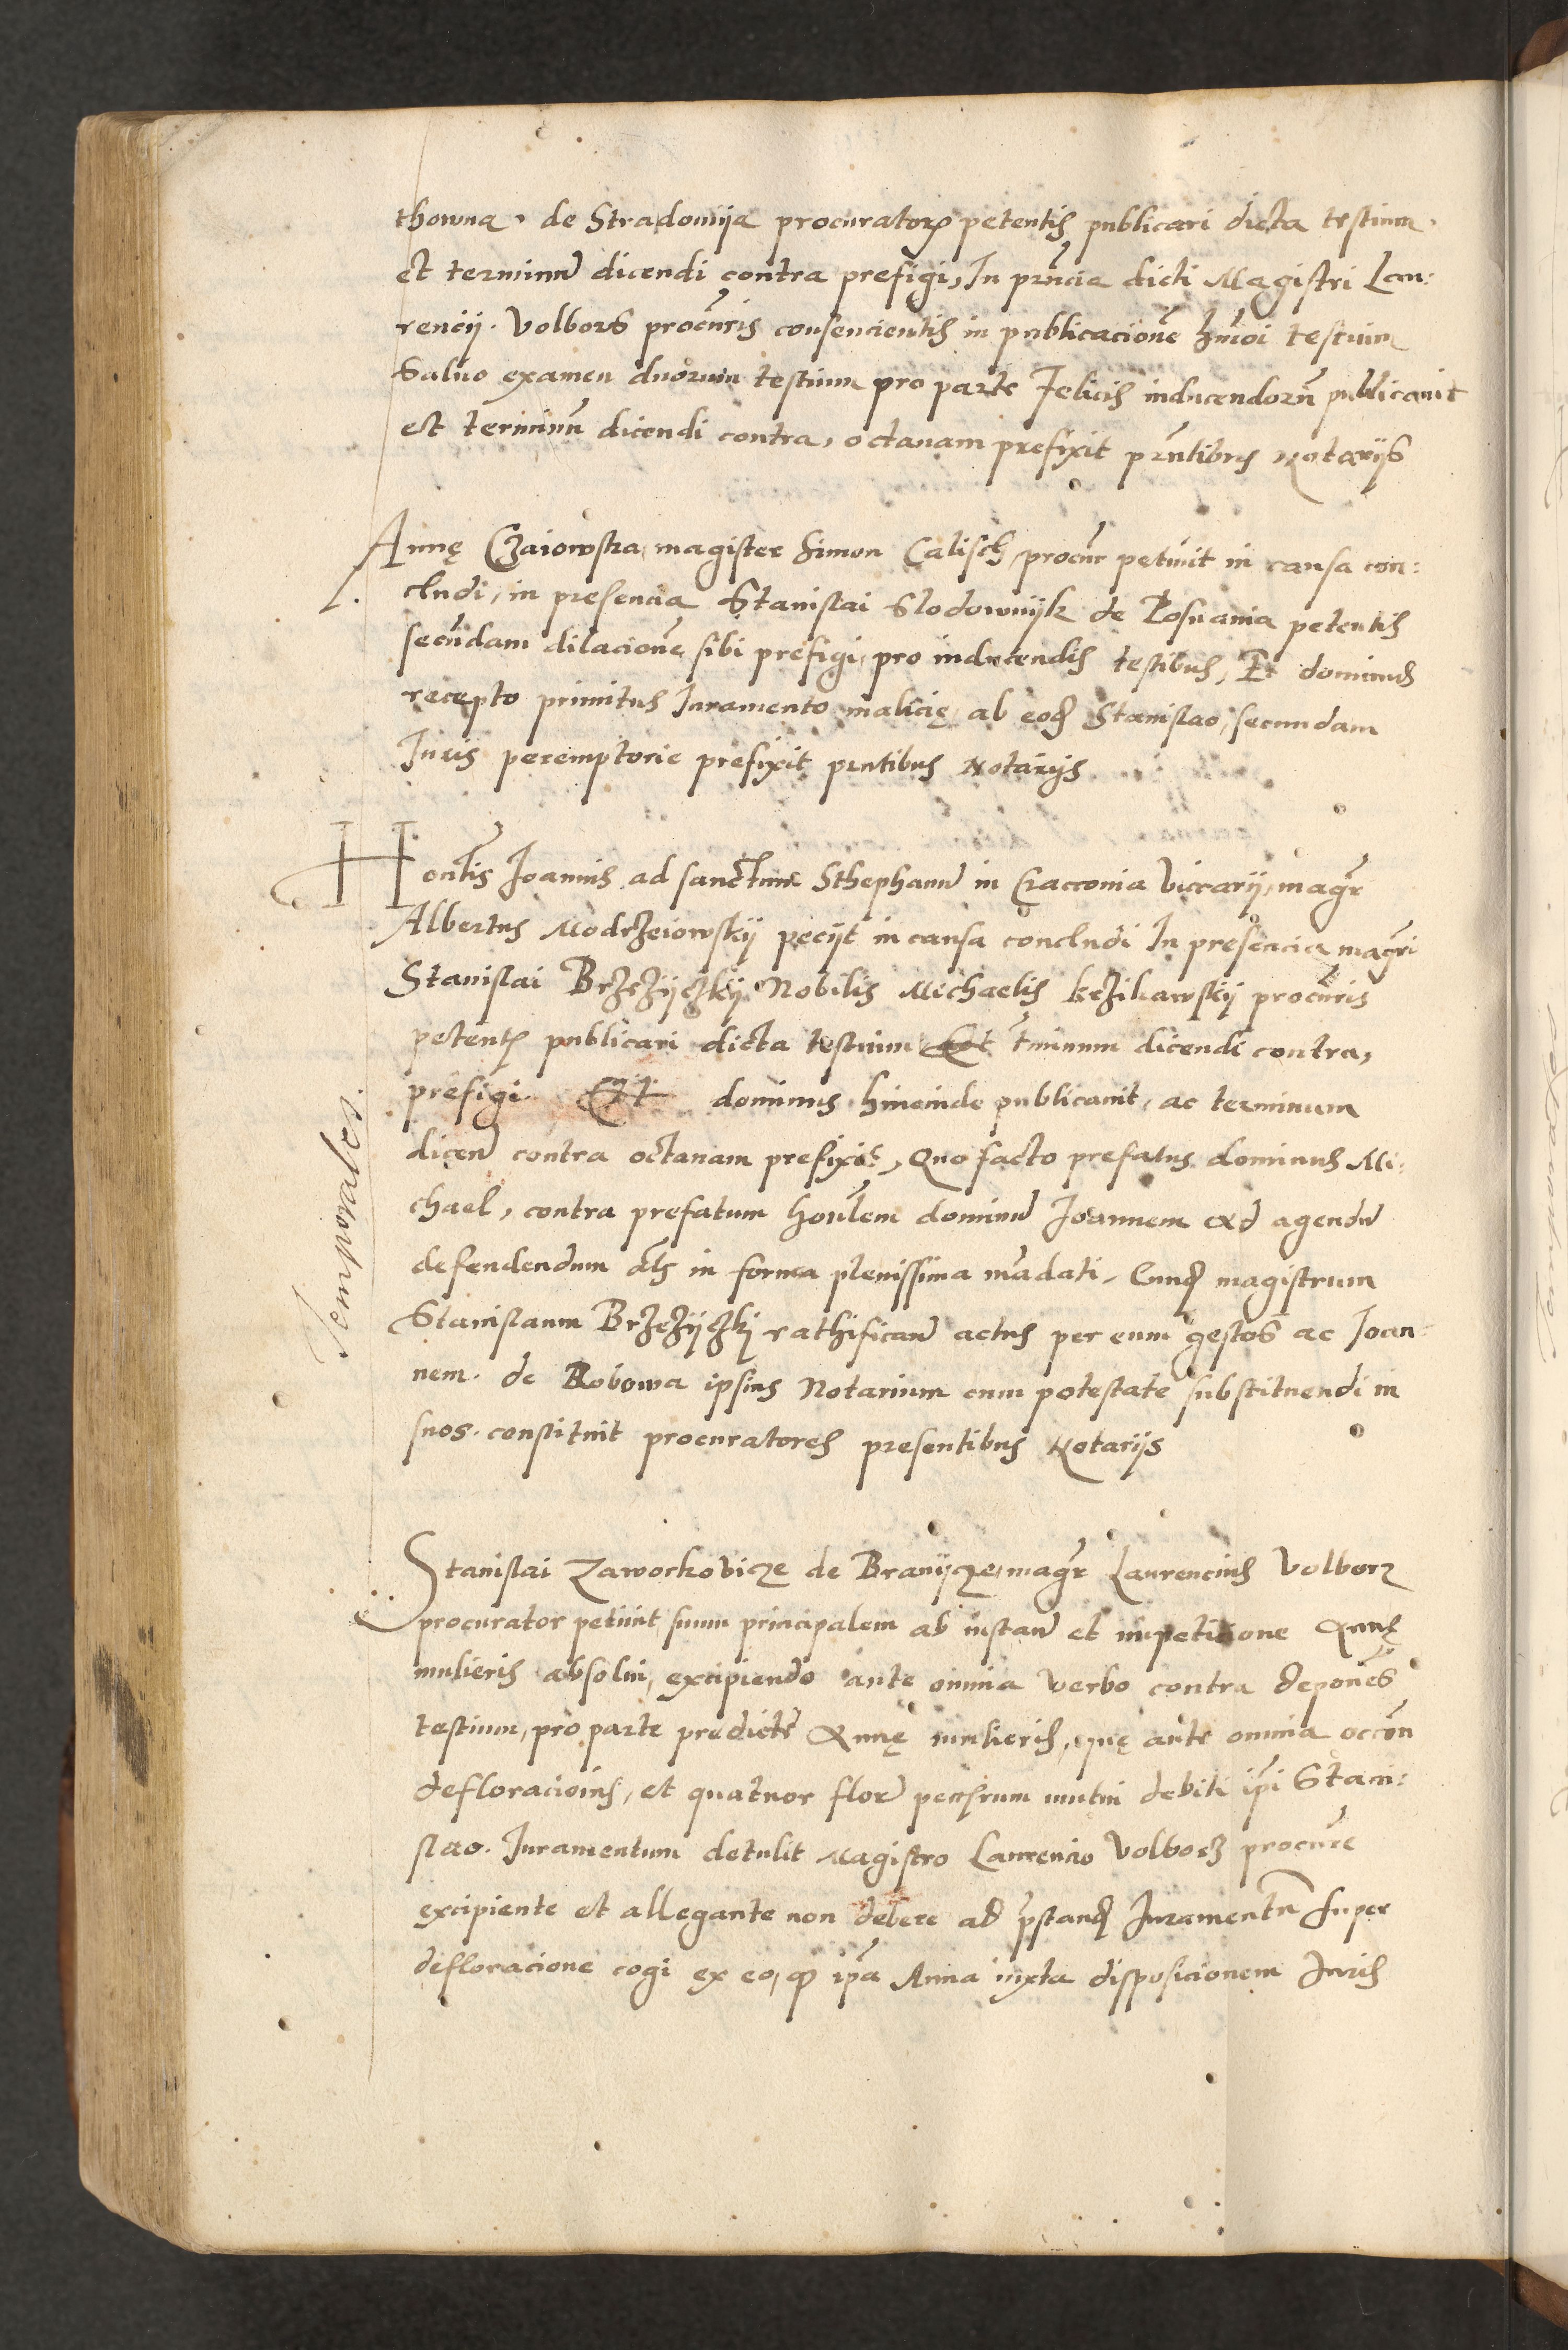 thowna. de Stradomija procuratoris petentis publicari dicta testium.
et terminum dicendi contra prefigi, In pñcia dicti Magistri Lau:
rencij. Volbors procũris consencientis in publicacionẽ hmõi testium
Salvo examen duorum testium pro parte Felicis inducendorũ publicavit
et terminũ dicendi contra, octavam prefixit pñtibus Notarijs
Annę Czaiowska, magister Simon Calisch, procur petivit in causa con:
cludi, in presencia Stanislai Slodownijk de Posnania petentis
secũdam dilacionẽ sibi prefigi, pro inducendis testibus, Et dominus
recepto primitus Iuramento malicię, ab eod Stanislao, secundam
Iuris peremptorie prefixit pñtibus Notarijs
Honlis Ioannis ad sanctum Sthephanũ in Cracovia Viccarij, magr
Albertus Modrzeiowskij pecijt in causa concludi In presencia magri
Stanislai Brzezijczkij Nobilis Michaelis krzikawskij procũris
petentis publicari dicta testium tminum dicendi contra,
prefigi. Et dominus hincinde publicavit, ac terminum
dicen contra octavam prefixit, Quo facto prefatus dominus Mi:
chael, contra prefatum honlem dominũ Ioannem ad agendũ
defendendum als in forma plenissima mãdati. Eund magistrum
Stanislaum Brzezijczkj rathificanď actus per eum gestos ac Ioan:
nem. de Bobowa ipsius Notarium cum potestate substituendi in
suos. constituit procuratores presentibus Notarijs
Temporales.
Stanislai Zaworkovicze de Branijcze, magr Laurencius Volborz
procurator petivit suum principalem ab instanť et impeticione Annę
mulieris absolvi, excipiendo ante omnia verbo contra deponẽs
testium, pro parte predictę Annę mulieris, quę ante omnia occõn
defloracionis, et quatuor flor pensrum mutui debiti ipi Stani:
slao. Iuramentum detulit Magistro Laurencio Volborz procũre
excipiente et allegante non debere ad pstand Iuramentũ super
defloracione cogi ex eo, q ipa Anna iuxta disposicionem Iuris